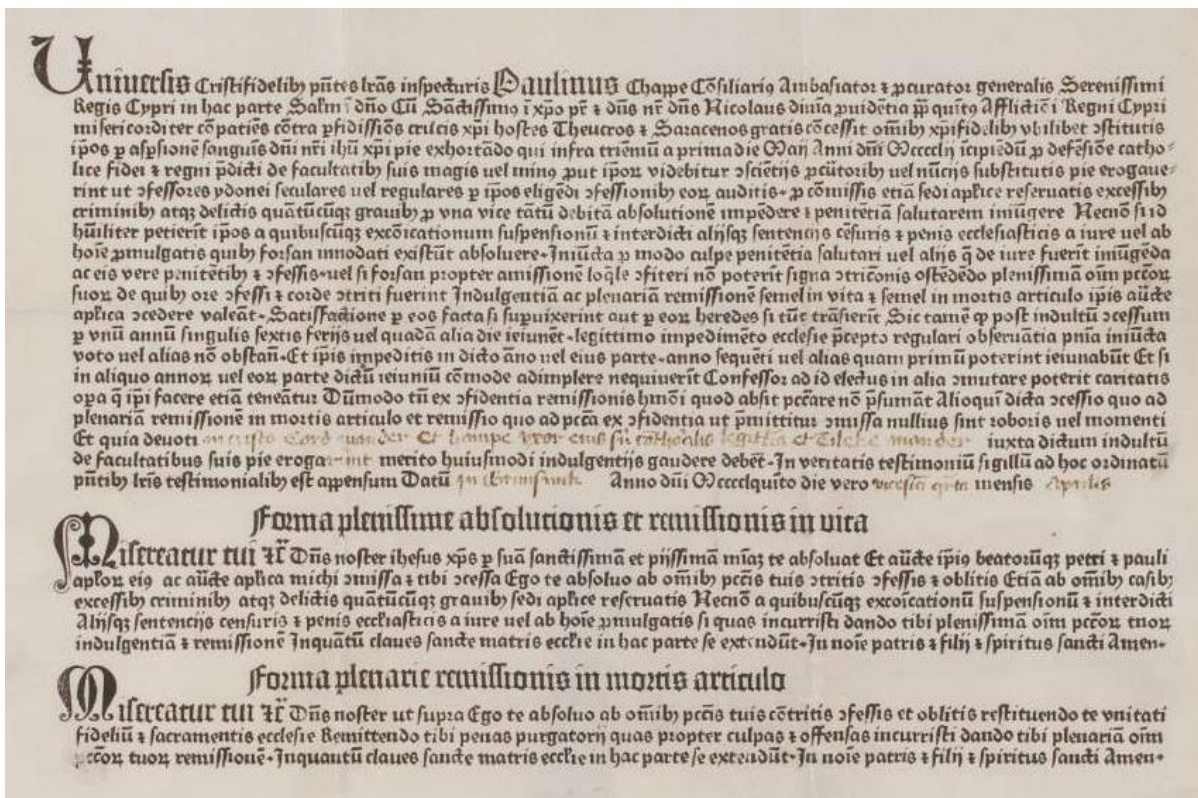 Uniuersis Cristifidelibꝫ pñtes lr̃as inspecturis Paulinus Chappe Cõsiliariꝰ Ambasiator ⁊ ꝓcurator generalis Serenissimi
Regis Cypri in hac parte Salt̃m ĩ dño Cũ Sãctissimꝰ ĩ xp̃o pr̃ ⁊ dñs nr̃ dñs Nicolaus diuĩa ꝓuidẽtia pp̃ quĩtꝰ Afflictiõi Regni Cypri
misericorditer cõpatiẽs cõtra ꝑfidissiõs crucis xp̃i hostes Theucros ⁊ Saracenos gratis cõcessit om̃ibꝫ xp̃ifidelibꝫ vbilibet ↄstitutis
ip̃os ꝑ aspsionẽ sanguĩs dñi nr̃i ihũ xp̃i pie exhortãdo qui infra triẽniũ a prima die Maij Anni dñi Mcccclij ĩcipiẽdũ ꝓ defẽsiõe catho⸗
lice fidei ⁊ regni p̃dicti de facultatibꝫ suis magis uel minꝰ ꝓut ip̃oꝝ videbitur ↄsciẽtijs ꝓcũtoribꝫ uel nũcijs substitutis pie erogaue⸗
rint ut ↄfessores ydonei seculares uel regulares ꝑ ip̃os eligẽdi ↄfessionibꝫ eoꝝ auditis · ꝓ cõmissis etiã sedi apl̃ice reseruatis excessibꝫ
criminibꝫ atqꝫ delictis quãtũcũqꝫ grauibꝫ ꝓ vna vice tãtũ debitã absolutionẽ impẽdere ⁊ penitẽtiã salutarem iniũgere Necnõ si id
hũiliter petierĩt ip̃os a quibuscũqꝫ excõicationum suspensionũ ⁊ interdicti alijsqꝫ sentencijs cẽsuris ⁊ penis ecclesiasticis a iure uel ab
hoĩe ꝓmulgatis quibꝫ forsan innodati existũt absoluere · Iniũcta ꝓ modo culpe penitẽtia salutari uel alijs q̃ de iure fuerĩt iniũgẽda
ac eis vere penitẽtibꝫ ⁊ ↄfessis · uel si forsan propter amissionẽ loq̃le ↄfiteri nõ poterĩt signa ↄtriciõnis ostẽdẽdo plenissimã oĩm pccõꝝ
suoꝝ de quibꝫ ore ↄfessi ⁊ corde ↄtriti fuerint Indulgentiã ac plenariã remissionẽ semel in vita ⁊ semel in mortis articulo ip̃is aũcte
apl̃ica ↄcedere valeãt · Satisfactione ꝑ eos facta si supuixerint aut ꝑ eoꝝ heredes si tũc trãsierĩt Sic tamẽ ꝙ post indultũ ↄcessum
ꝑ vnũ annũ singulis sextis ferijs uel quadã alia die ieiunẽt · legittimo impedimẽto ecclesie p̃cepto regulari obseruãtia pñia iniũcta
voto uel alias nõ obstañ · Et ip̃is impeditis in dicto ãno uel eius parte · anno sequẽti uel alias quam primũ poterint ieiunabũt Et si
in aliquo annoꝝ uel eoꝝ parte dictũ ieiuniũ cõmode adimplere nequiuerĩt Confessor ad id electus in alia ↄmutare poterit caritatis
oꝑa q̃ ip̃i facere etiã teneãtur Dũmodo tñ ex ↄfidentia remissionis hm̃oi quod absit pccãre nõ p̃sumãt Alioqũi dicta ↄcessio quo ad
plenariã remissionẽ in mortis articulo et remissio quo ad pcc̃a ex ↄfidentia ut p̃mittitur ↄmissa nullius sint roboris uel momenti
Et quia deuoti iuxta dictum indultũ
de facultatibus suis pie eroga rint merito huiusmodi indulgentijs gaudere debẽt · In veritatis testimoniũ sigillũ ad hoc ordinatũ
pñtibꝫ lr̃is testimonialibꝫ est appensum Datũ Anno dñi Mccccl quĩto die vero mensis Aprilis
Forma plenissime absolutionis et remissionis in vita
Misereatur tui ⁊c̃ Dñs noster ihesus xp̃s ꝑ suã sanctissimã et pijssimã mĩaꝫ te absoluat Et aũcte ip̃iꝰ beatorũqꝫ petri ⁊ pauli
apl̃oꝝ eiꝰ ac aũcte apl̃ica michi ↄmissa ⁊ tibi ↄcessa Ego te absoluo ab om̃ibꝫ pcc̃is tuis ↄtritis ↄfessis ⁊ oblitis Etiã ab om̃ibꝫ casibꝫ
excessibꝫ criminibꝫ atqꝫ delictis quãtũcũqꝫ grauibꝫ sedi apl̃ice reseruatis Necnõ a quibuscũqꝫ excõicationũ suspensionũ ⁊ interdicti
Alijsqꝫ sentencijs censuris ⁊ penis eccl̃iasticis a iure uel ab hoĩe ꝓmulgatis si quas incurristi dando tibi plenissimã oĩm pccõꝝ tuoꝝ
indulgentiã ⁊ remissionẽ Inquãtũ claues sancte matris eccl̃ie in hac parte se extendũt · In noĩe patris ⁊ filij ⁊ spiritus sancti Amen ·
Forma plenarie remissionis in mortis articulo
Misereatur tui ⁊c̃ Dñs noster ut supra Ego te absoluo ab om̃ibꝫ pcc̃is tuis cõtritis ↄfessis et oblitis restituendo te vnitati
fideliũ ⁊ sacramentis ecclesie Remittendo tibi penas purgatorij quas propter culpas ⁊ offensas incurristi dando tibi plenariã oĩm
pccõꝝ tuoꝝ remissionẽ · Inquantũ claues sancte matris eccl̃ie in hac parte se extendũt · In noĩe patris ⁊ filij ⁊ spiritus sancti Amen ·